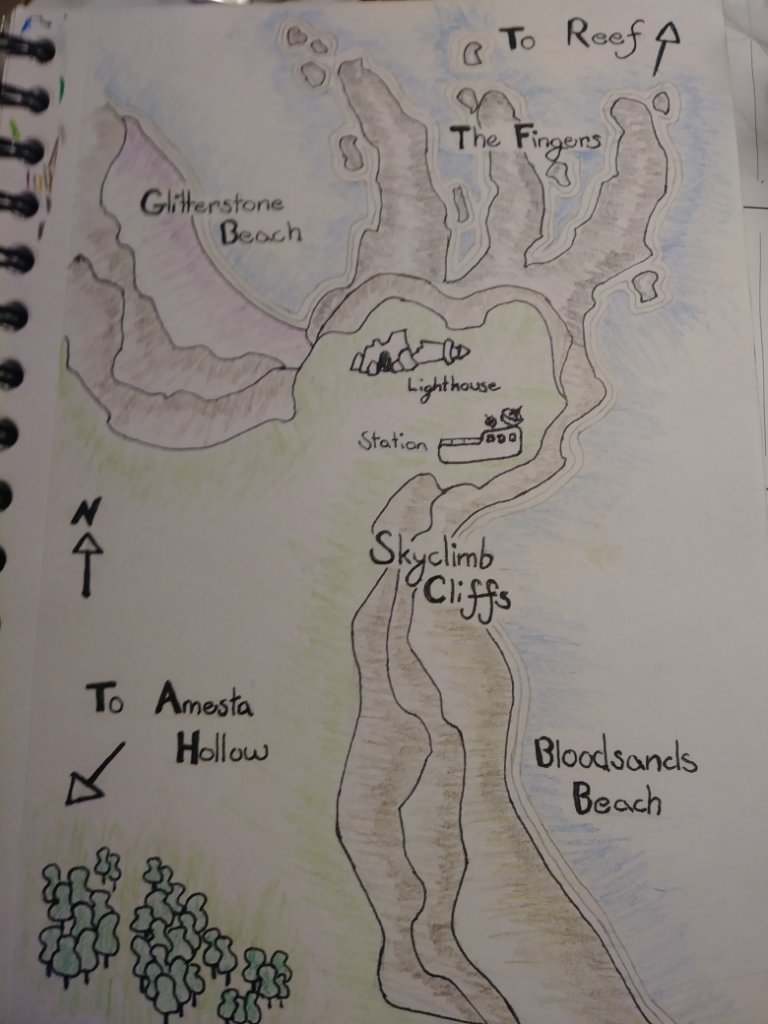 To Reef
The Fingers
Glitterstone
Beach
Lighthouse
Station
N
Skyclimb
Cliffs
To Amesta
Hollow
Bloodsands
Beach